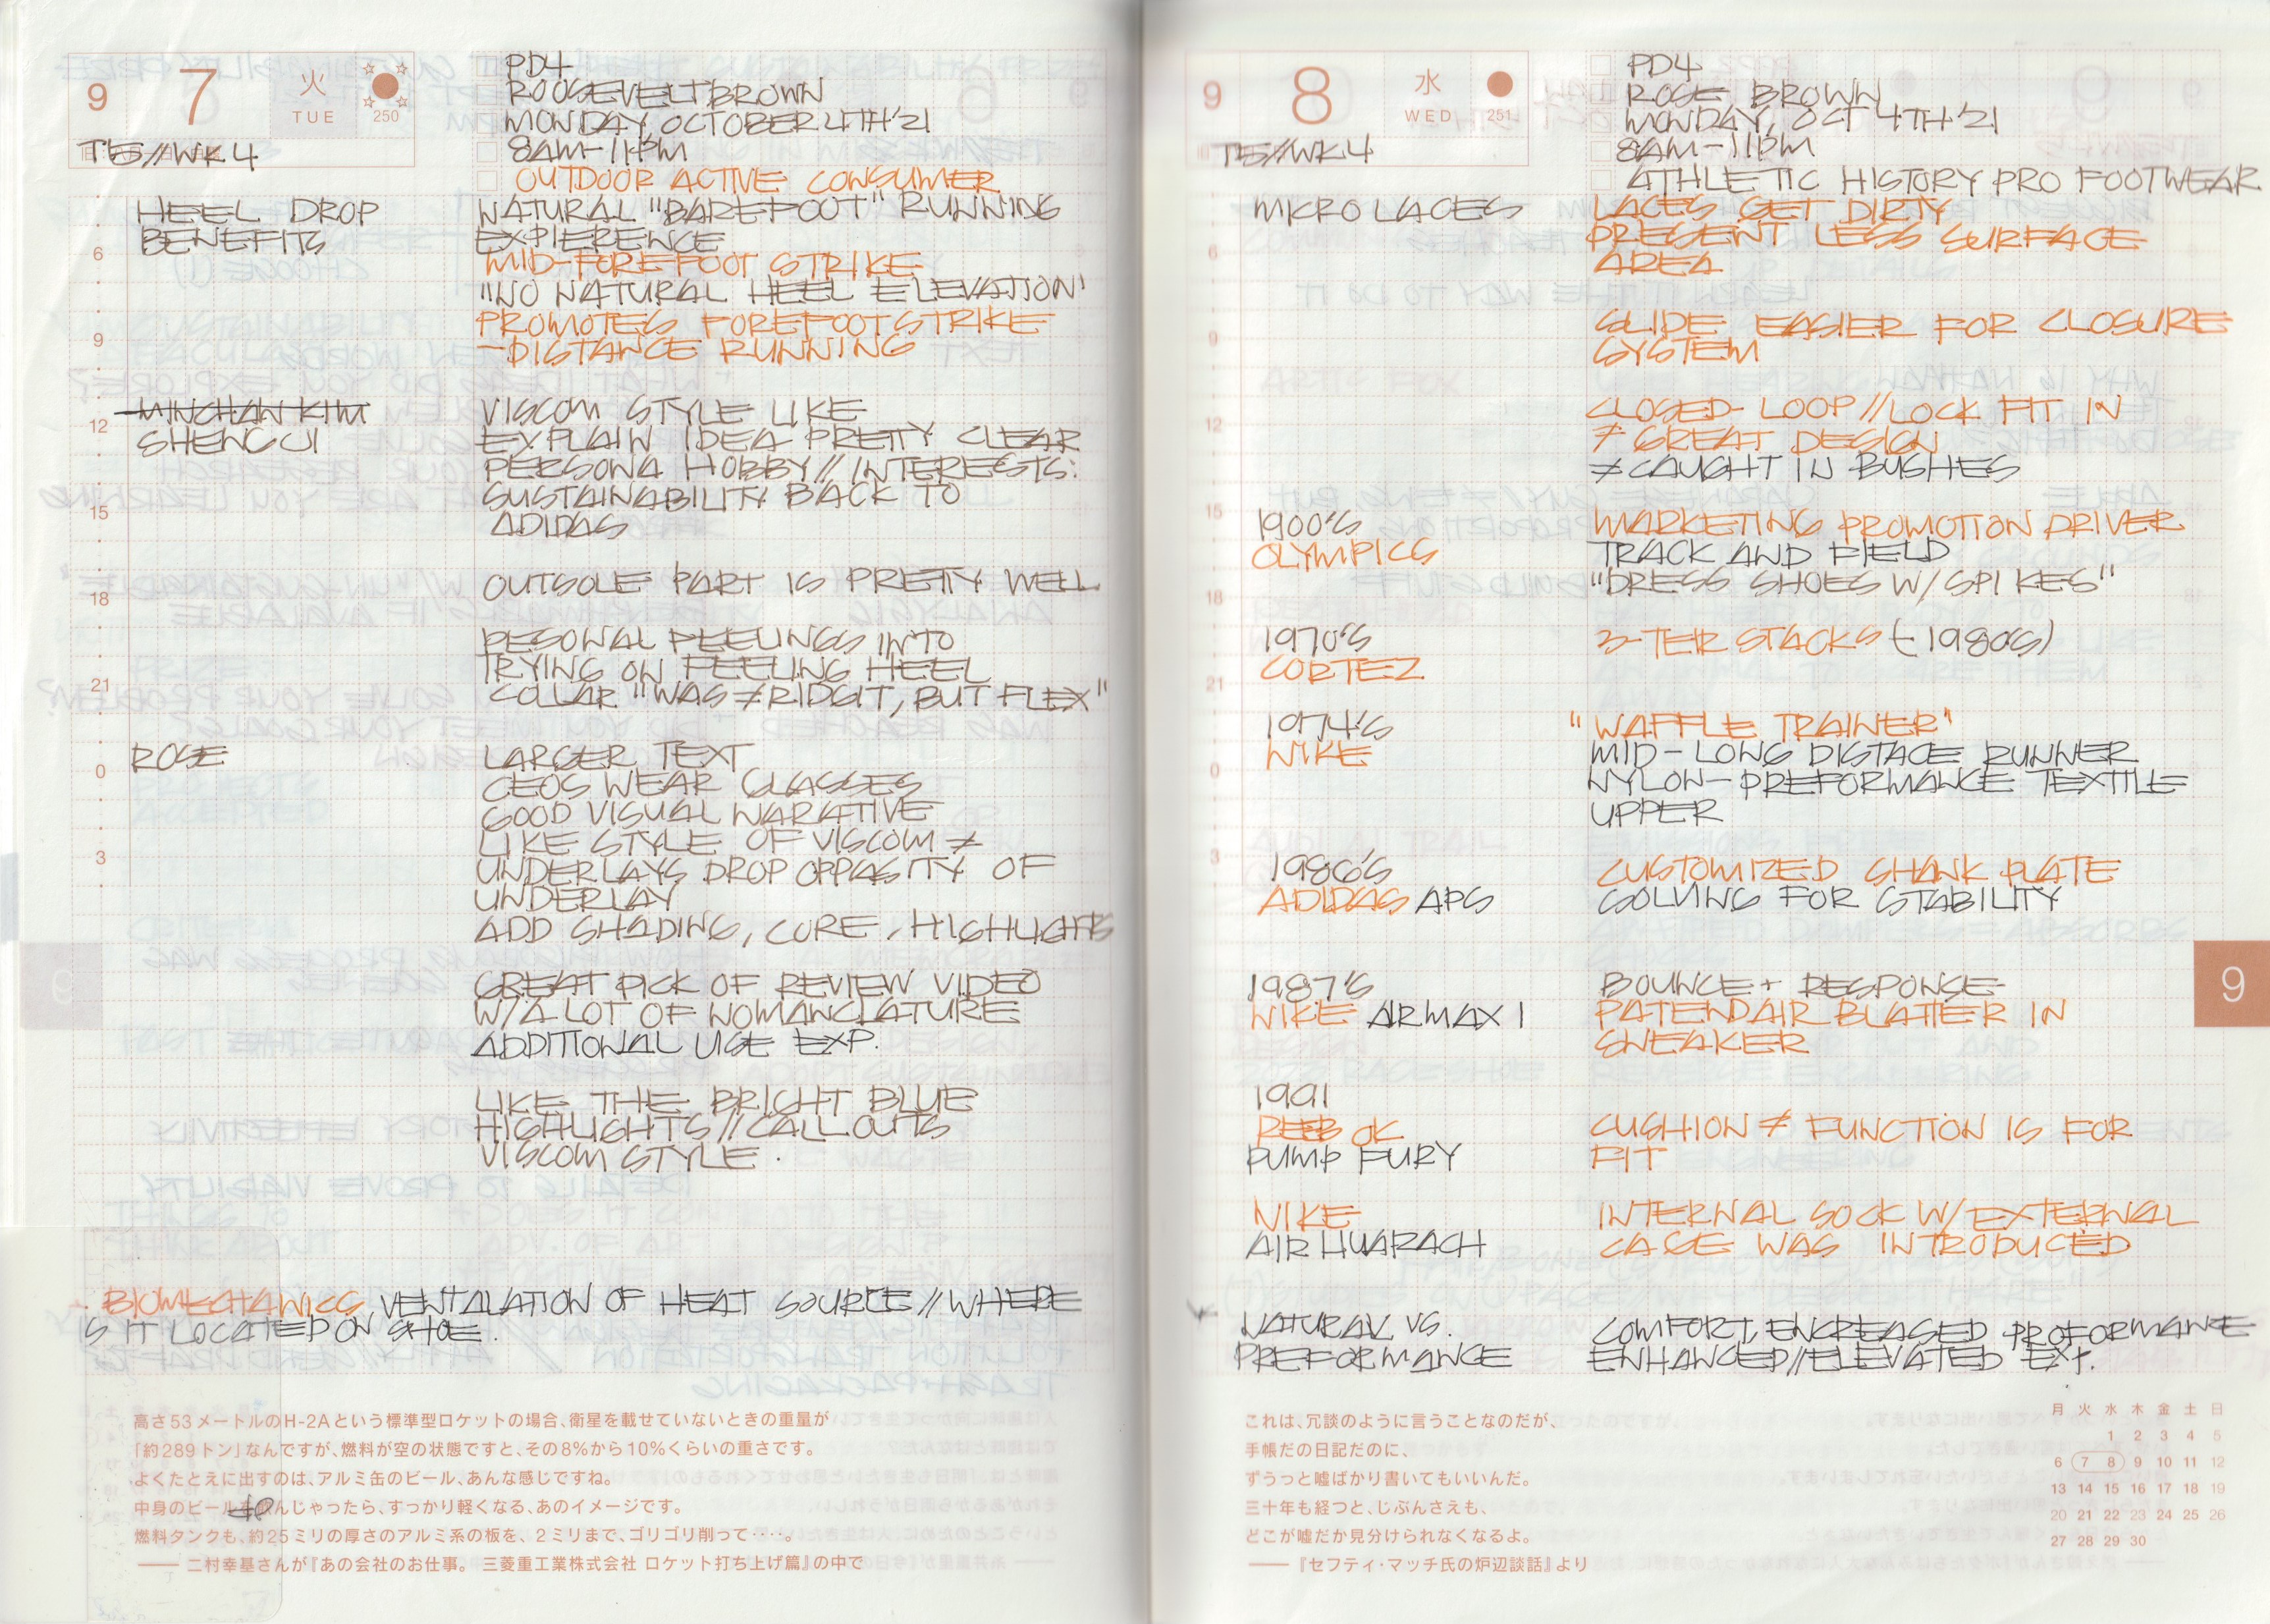 9 7 火 TUE 250
T5//WK4
PD4
ROOSEVELT BROWN
MONDAY, OCTOBER 4TH '21
8AM-11PM
OUTDOOR ACTIVE CONSUMER
HEEL DROP
BENEFITS
NATURAL "BAREFOOT" RUNNING
EXPIERENCE
MID-FOREFOOT STRIKE
"NO NATURAL HEEL ELEVATION'
PROMOTES FOREFOOT STRIKE
-DISTANCE RUNNING
MINCHAN KIM
SHENGUI
VISCOM STYLE LIKE
EXPLAIN IDEA PRETTY CLEAR
PERSONA HOBBY//INTERESTS:
SUSTAINABILITY BACK TO
ADIDAS
OUTSOLE PART IS PRETTY WELL
PESONAL FEELINGS INTO
TRYING ON FEELING HEEL
COLLAR "WAS ≠ RIDGIT, BUT FLEX"
ROSE
LARGER TEXT
CEOS WEAR GLASSES
GOOD VISUAL NARATIVE
LIKE STYLE OF VISCOM ≠
UNDERLAYS DROP OPPASITY OF
UNDERLAY
ADD SHADING, CORE, HIGHLIGHTS
GREAT PICK OF REVIEW VIDEO
W/A LOT OF NOMANCLATURE
ADDITIONAL USE EXP.
LIKE THE BRIGHT BLUE
HIGHLIGHTS//CALLOUTS
VISCOM STYLE.
6
9
12
15
18
21
0
3
9
· BIOMECHANICS, VENTALATION OF HEAT SOURCE//WHERE
IS IT LOCATED ON SHOE.
高さ53メートルのH-2Aという標準型ロケットの場合、衛星を載せていないときの重量が
「約289トン」なんですが、燃料が空の状態ですと、その8%から10%くらいの重さです。
よくたとえに出すのは、アルミ缶のビール、あんな感じですね。
中身のビールを飲んじゃったら、すっかり軽くなる、あのイメージです。
燃料タンクも、約25ミリの厚さのアルミ系の板を、2ミリまで、ゴリゴリ削って‥‥。
—— 二村幸基さんが『あの会社のお仕事。 三菱重工業株式会社 ロケット打ち上げ篇』の中で
9 8 水 WED 251
T5//WK4
PD4
ROSE BROWN
MONDAY, OCT 4TH '21
8AM-11PM
ATHLETIC HISTORY PRO FOOTWEAR
MICRO LACES
LACES GET DIRTY
PRESENT LESS SURFACE
AREA
SLIDE EASIER FOR CLOSURE
SYSTEM
CLOSED-LOOP//LOCK FIT IN
≠ GREAT DESIGN
≠ CAUGHT IN BUSHES
1900'S
OLYMPICS
MARKETING PROMOTION DRIVER
TRACK AND FIELD
"DRESS SHOES W/SPIKES"
1970'S
CORTEZ
3-TEIR STACKS (-1980'S)
1974'S
NIKE
"WAFFLE TRAINER"
MID-LONG DISTACE RUNNER
NYLON-PREFORMANCE TEXTILE
UPPER
1986'S
ADIDAS APS
CUSTOMIZED SHANK PLATE
SOLVING FOR STABILITY
1987'S
NIKE AIRMAX 1
BOUNCE + RESPONSE
PATEND AIR BLATTER IN
SNEAKER
1991
REEBOK
PUMP FURY
CUSHION ≠ FUNCTION IS FOR
FIT
NIKE
AIR HUARACH
INTERNAL SOCK W/EXTERNAL
CAGE WAS INTRODUCED
NATURAL VS.
PREFORMANCE
COMFORT, ENCREASED PROFORMANCE
ENHANCED//ELEVATED EXP.
6
9
12
15
18
21
0
3
9
これは、冗談のように言うことなのだが、
手帳だの日記だのに、
ずうっと嘘ばかり書いてもいいんだ。
三十年も経つと、じぶんさえも、
どこが嘘だか見分けられなくなるよ。
—— 『セフティ・マッチ氏の炉辺談話』より
月 火 水 木 金 土 日
1 2 3 4 5
6 7 8 9 10 11 12
13 14 15 16 17 18 19
20 21 22 23 24 25 26
27 28 29 30